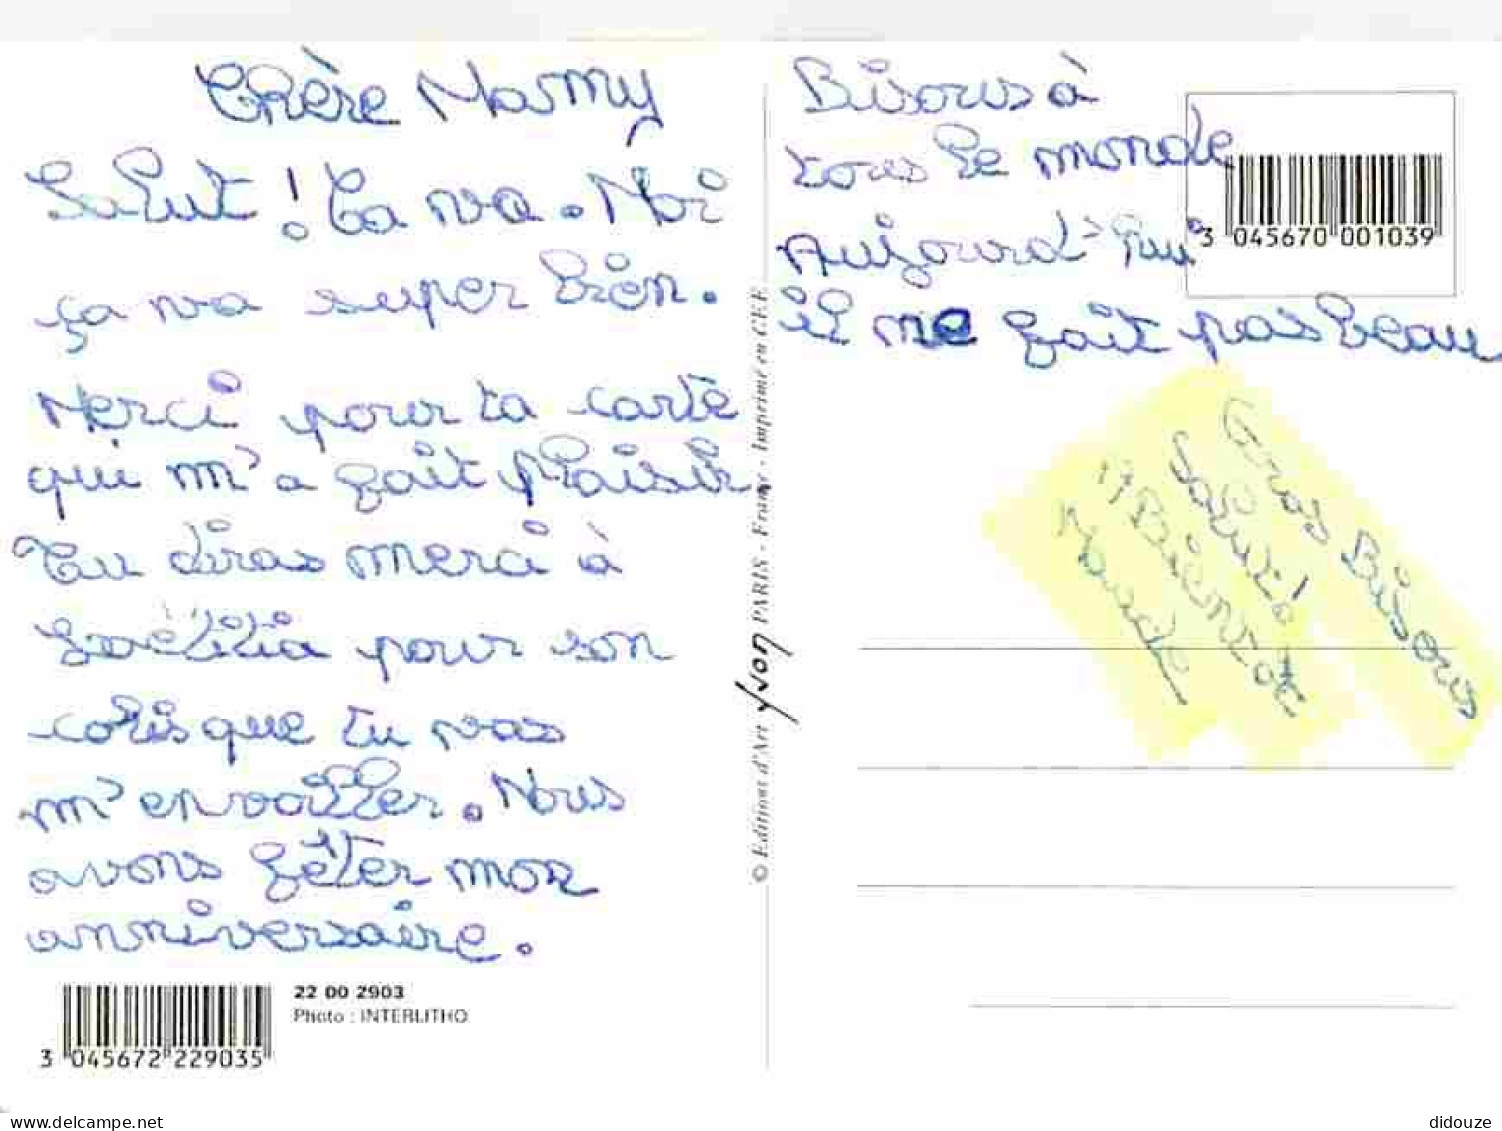 Chère Mamy
Salut ! Ca va. Moi
ça va super bien.
Merci pour ta carte
qui m'a fait plaisir
Tu diras merci à
Laëtitia pour son
colis que tu vas
m'envoiller. Nous
avons fêter mon
anniversaire.
3 045672 229035
22 00 2903
Photo : INTERLITHO
© Editions d'Art yvon PARIS - France - Imprimé en C.E.E.
Bisous à
tous le monde
Aujourd'hui
il ne fait pas beau
3 045670 001039
Gros Bisous
Salut !
à Bientôt
delcampe.net
didouze